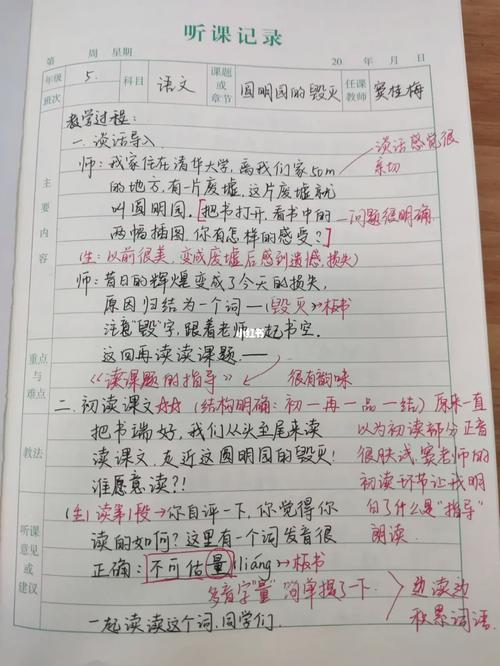 听课记录
第 周 星期 20 年 月 日
年级 班次 5. 科目 语文 课题或章节 圆明园的毁灭 任课教师 窦桂梅
教学过程:
一. 谈话导入 谈话感觉很亲切
师:我家住在清华大学,离我们家50m
的地方,有一片废墟,这片废墟就
叫圆明园.[把书打开,看书中的 问题很明确
两幅插图,你有怎样的感受?]
(生:以前很美,变成废墟后感到遗憾,损失)
师:昔日的辉煌变成了今天的损失,
原因归结为一个词—(毁灭)→板书
注意"毁"字,跟着老师一起书空.
这回再读读课题.—
《读课题的指导》 很有韵味
二. 初读课文☆☆ (结构明确:初一再一品一结) 原来一直
把书端好,我们从头至尾来读 以为初读部分正音
读课文,走近这圆明园的毁灭! 很肤浅,窦老师的
谁愿意读?! 初读环节让我明
(生)读第1段→你自评一下,你觉得你 白了什么是"指导"
读的如何?这里有一个词发音很 朗读.
正确:不可估量 liáng→板书
多音字"量" 简单提了一下. 边读边
一起读读这个词,同学们. 积累词语.
主要内容
重点与难点
教法
听课意见或建议
小红书